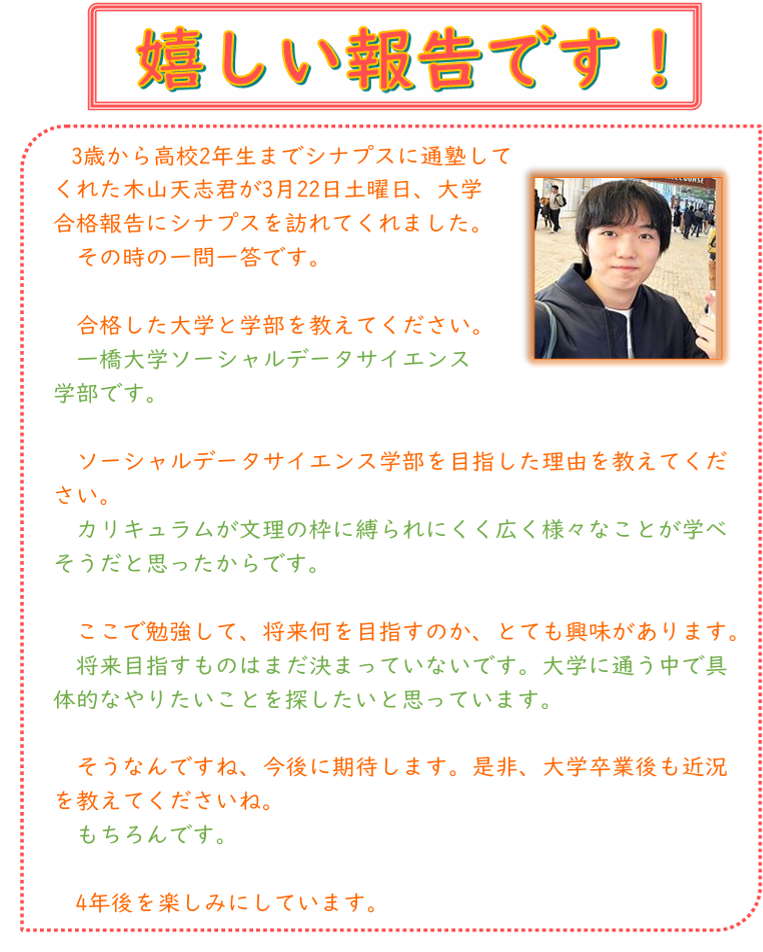 嬉しい報告です！
3歳から高校2年生までシナプスに通塾して
くれた木山天志君が3月22日土曜日、大学
合格報告にシナプスを訪れてくれました。
その時の一問一答です。
合格した大学と学部を教えてください。
一橋大学ソーシャルデータサイエンス
学部です。
ソーシャルデータサイエンス学部を目指した理由を教えてくだ
さい。
カリキュラムが文理の枠に縛られにくく広く様々なことが学べ
そうだと思ったからです。
ここで勉強して、将来何を目指すのか、とても興味があります。
将来目指すものはまだ決まっていないです。大学に通う中で具
体的なやりたいことを探したいと思っています。
そうなんですね、今後に期待します。是非、大学卒業後も近況
を教えてくださいね。
もちろんです。
4年後を楽しみにしています。